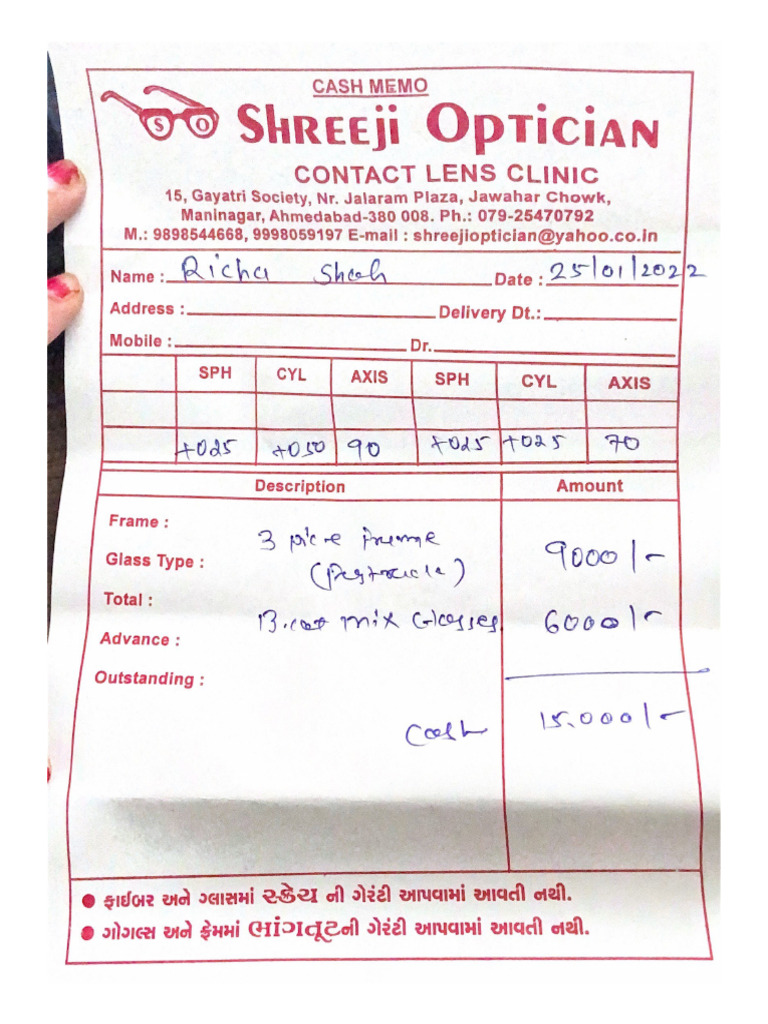 CASH MEMO
S O SHREEJI OPTICIAN
CONTACT LENS CLINIC
15, Gayatri Society, Nr. Jalaram Plaza, Jawahar Chowk,
Maninagar, Ahmedabad-380 008. Ph.: 079-25470792
M.: 9898544668, 9998059197 E-mail : shreejioptician@yahoo.co.in
Name : Richa Shah Date : 25/01/2022
Address : Delivery Dt.:
Mobile : Dr.
SPH CYL AXIS SPH CYL AXIS
+025 +050 90 +025 +025 70
Description Amount
Frame :
3 piece frame 9000/-
Glass Type :
Total :
mix Glasses 6000/-
Advance :
Outstanding :
Cash 15.000/-
● ફાઈબર અને ગ્લાસમાં સ્ક્રેચ ની ગેરંટી આપવામાં આવતી નથી.
● ગોગલ્સ અને ફ્રેમમાં ભાંગતૂટની ગેરંટી આપવામાં આવતી નથી.